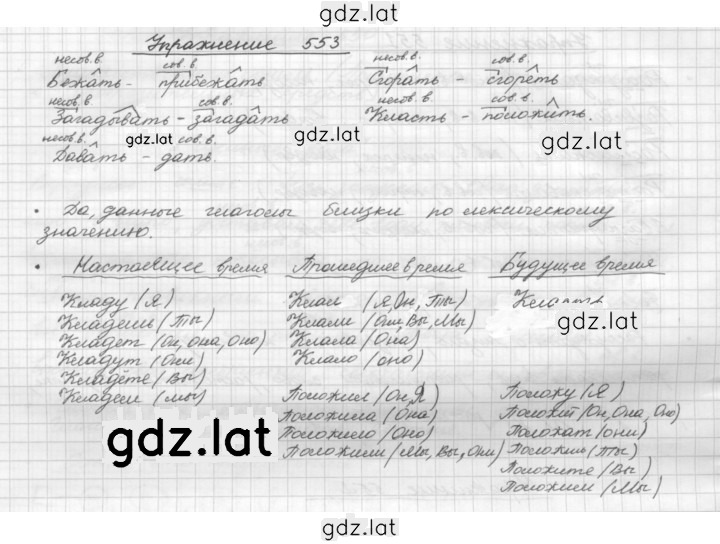 gdz.lat
Упражнение 553
несов.в. сов.в. несов.в. сов.в.
Бежать - прибежать Сгорать - сгореть
несов.в. сов.в. несов.в. сов.в.
Загадывать - загадать Класть - положить.
gdz.lat gdz.lat gdz.lat
несов.в. сов.в.
Давать - дать.
· Да, данные глаголы близки по лексическому
значению.
· Настоящее время Прошедшее время Будущее время
Кладу (Я) Клал (Я, Он, Ты)
Кладешь (Ты) Клали (Они, Вы, Мы)
gdz.lat
Кладет (Он, она, оно) Клала (Она)
Кладут (Они) Клало (оно)
Кладёте (Вы)
Кладем (мы) Положил (Он, Я) Положу (Я)
Положила (Она) Положит (Он, Она, Оно)
gdz.lat
Положило (Оно) Положат (они)
Положили (Мы, Вы, Они) Положишь (Ты)
Положите (Вы)
Положим (Мы)
gdz.lat